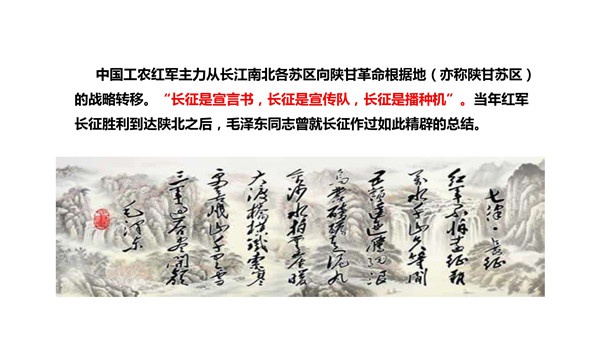 中国工农红军主力从长江南北各苏区向陕甘革命根据地（亦称陕甘苏区）
的战略转移。“长征是宣言书，长征是宣传队，长征是播种机”。当年红军
长征胜利到达陕北之后，毛泽东同志曾就长征作过如此精辟的总结。
七律·长征
红军不怕远征难
万水千山只等闲
五岭逶迤腾细浪
乌蒙磅礴走泥丸
金沙水拍云崖暖
大渡桥横铁索寒
更喜岷山千里雪
三军过后尽开颜
毛泽东